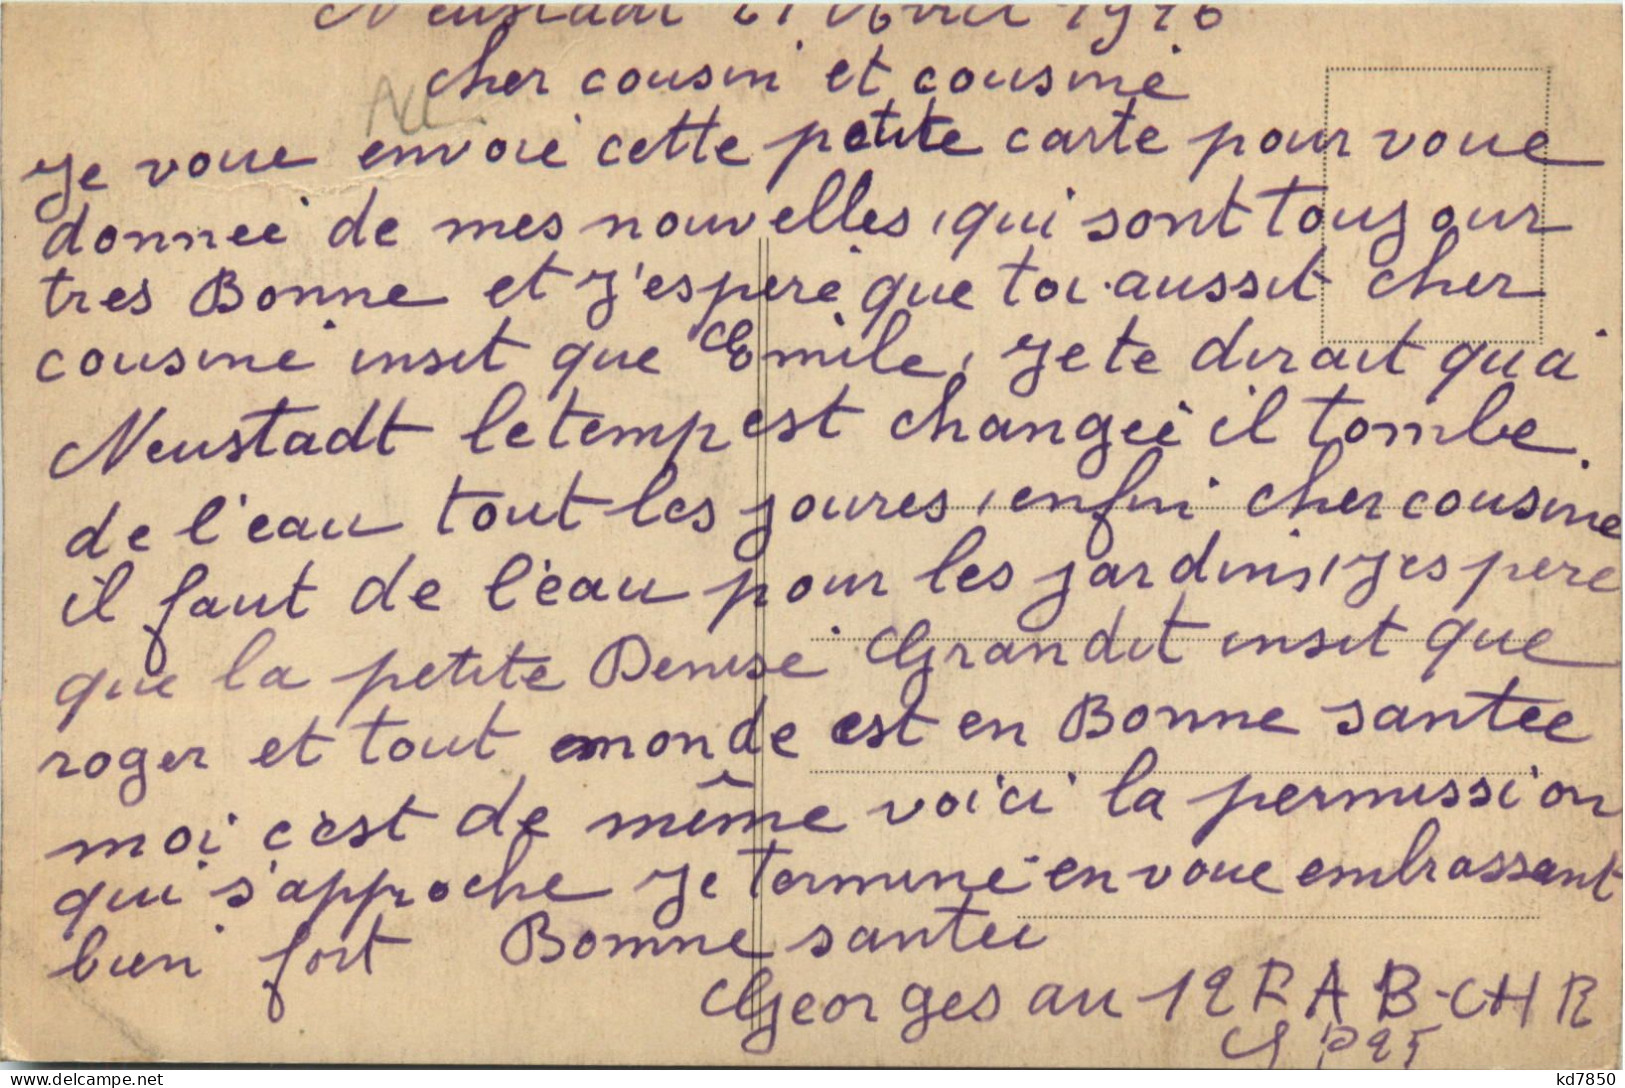 Neustadt 21 Avril 1946
cher cousin et cousine
Je voue envoie cette petite carte pour voue
donnée de mes nouvelles, qui sont toujour
tres Bonne et J'espere que toi aussit cher
cousine insit que Emile, Je te dirait qu a
Neustadt le temp est changée il tombe
de l'eau tout les joures, enfin cher cousine
il faut de l'eau pour les jardins, J'espere
que la petite Denise Grandit insit que
roger et tout monde est en Bonne santee
moi c'est de même voici la permission
qui s'approche Je termine en voue embrassant
bien fort Bonne santee
Georges au 12 R A B-CHR
kd7850